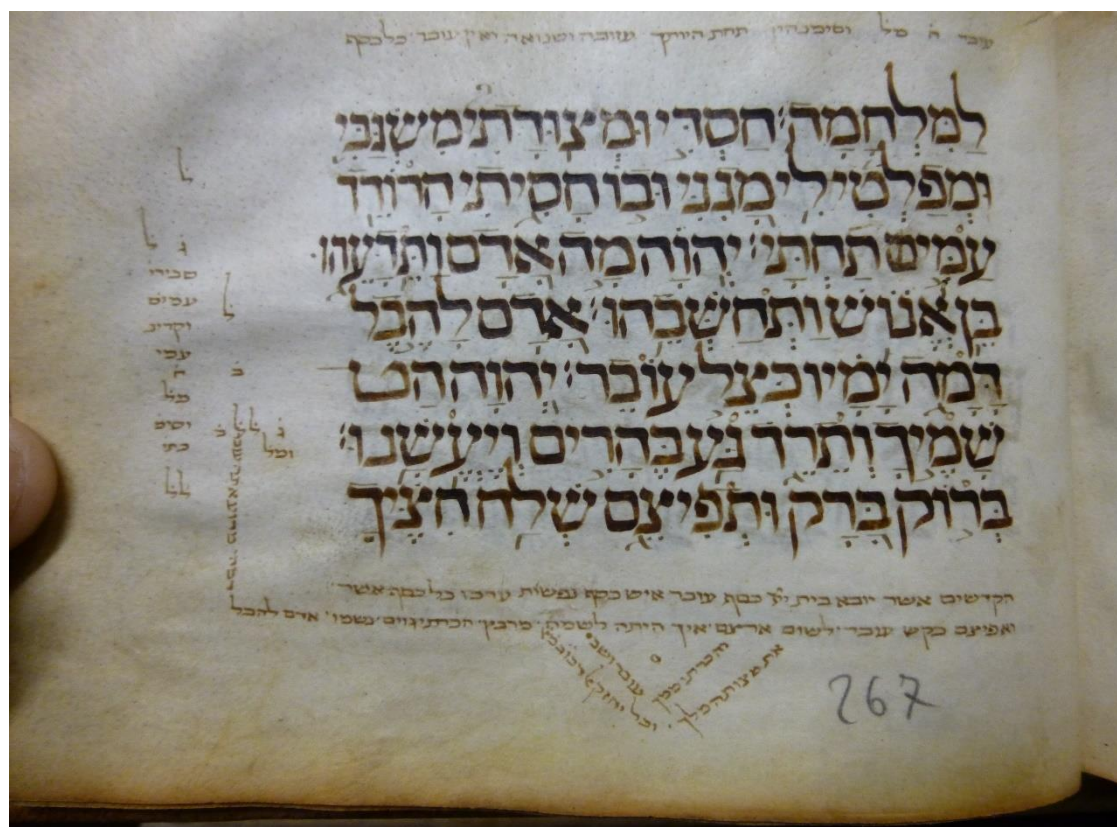 עובר ה מל וסימנהון תחת היותך עזובה ושנואה ואין עובר כל כסף
למלחמה׃ חסדי ומצודתי משגבי
ומפלטי לי מגני ובו חסיתי הרודד
עמים תחתי׃ יהוה מה אדם ותדעהו
בן אנוש ותחשבהו׃ אדם להבל
דמה ימיו כצל עובר׃ יהוה הט
שמיך ותרד גע בהרים ויעשנו׃
ברוק ברק ותפיצם שלח חציך
ל
ל
ג
סבירי
עמים
וקרינ
עמי
ד
מל
וסימ
כתי
הקדשים אשר יובא בית יי כסף עובר איש כסף נפשות ערכו כל כסף אשר
ואפיצם כקש עובר לשום ארצם איך היתה לשמה מרבץ הכרתי גוים נשמו אדם להבל
הכרתי ממך עובר ושב
את מצות המלך
267